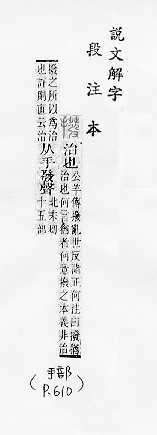 說文解字
段注本
撥 治也 公羊傳撥亂世反諸正何注曰撥猶
治也何言猶者何意撥之本義非治
撥之所以爲治
也許則直云治
从手發聲 北末切
十五部
(手部
P.610)